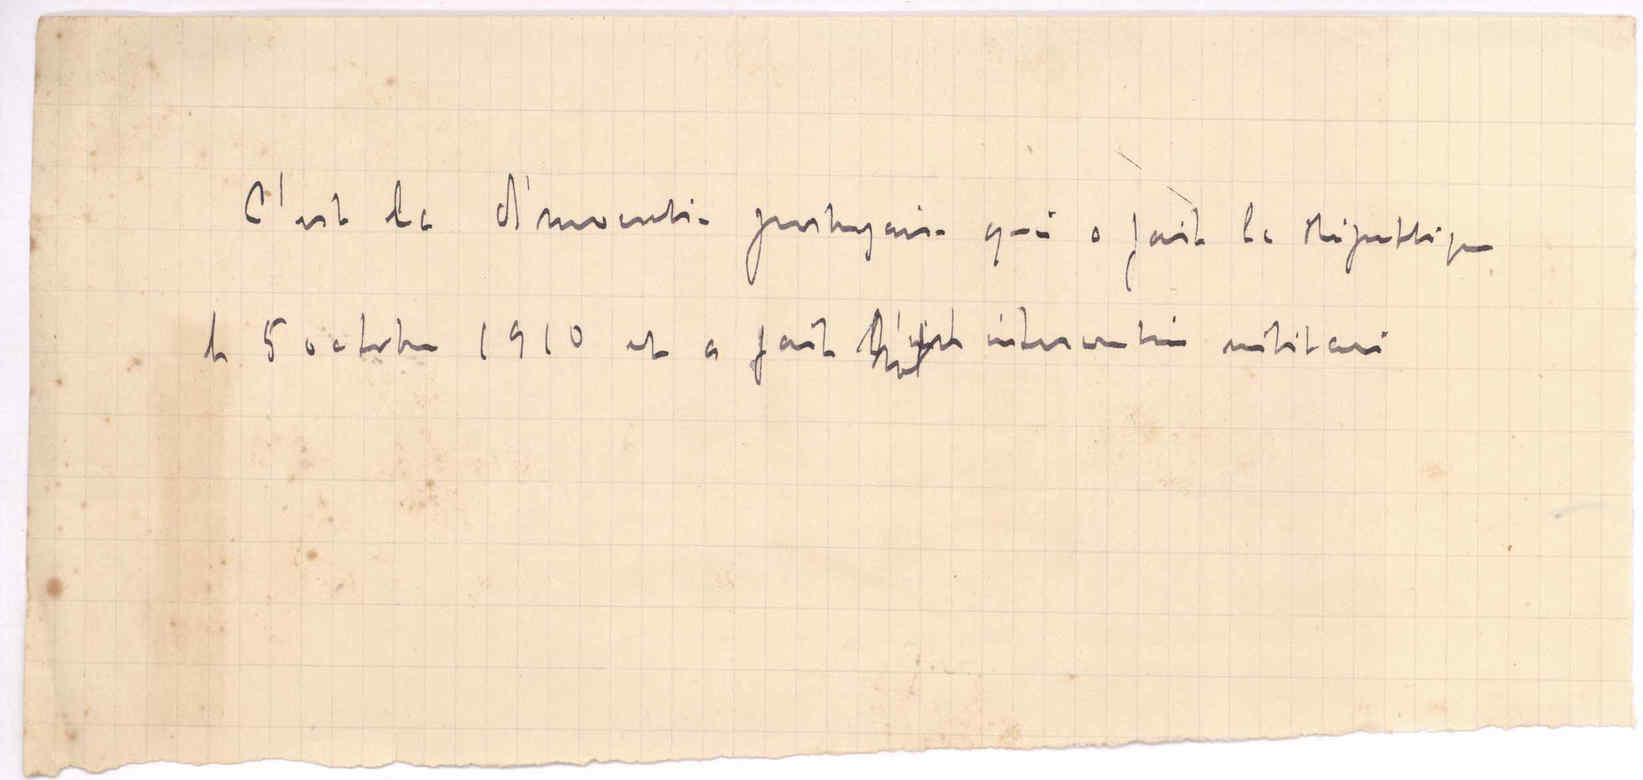 C'est la Démocratie portugaise qui a fait la République
le 5 octobre 1910 et a fait intervention militaire